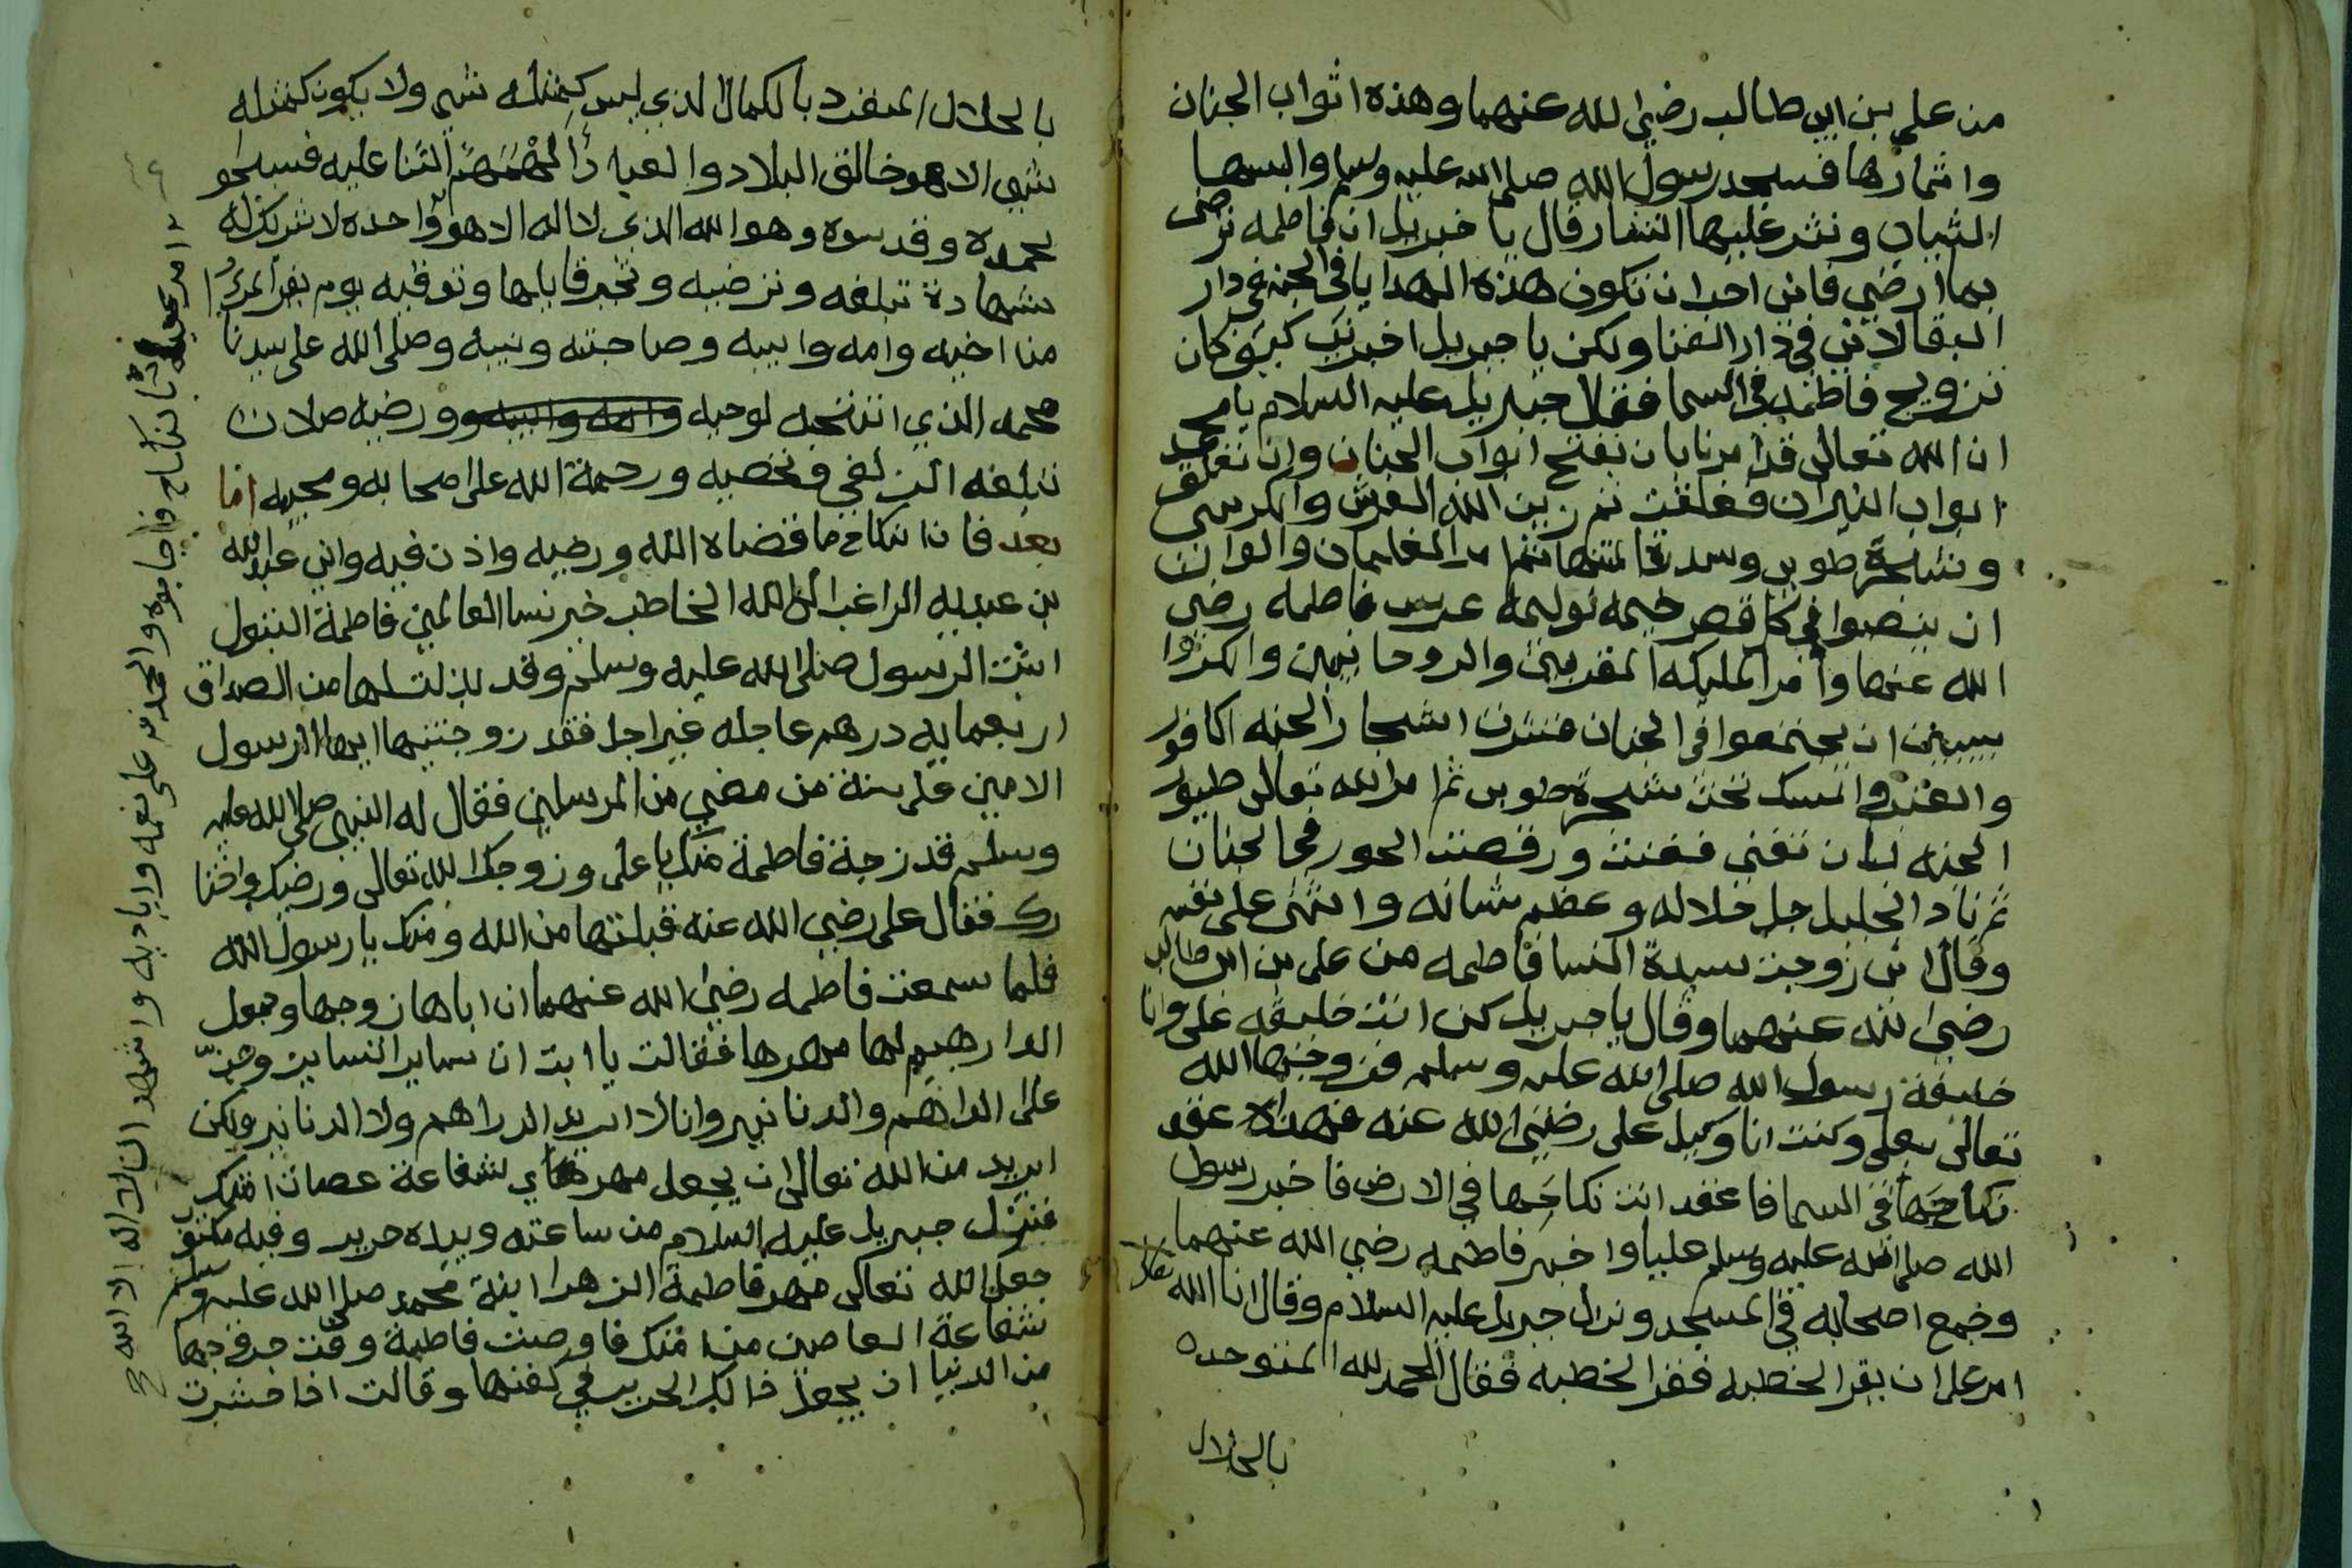 من علي بن ابي طالب رضي الله عنهما وهذه اثواب الجنان
واثمارها فسجد رسول الله صلى الله عليه وسلم والبسها
الثياب ونثر عليها النثار قال يا جبريل ان فاطمه ترضى
بما ارضي فاني احب ان تكون هذه الهدايا في الجنه في دار
البقا لا في دار الفنا ولكن يا جبريل اخبرني كيف كان
تزويج فاطمه في السما فقال جبريل عليه السلام يا محمد
ان الله تعالى قد امرنا بان تفتح ابواب الجنان وان تغلق
ابواب النيران فغلقت ثم زين الله العرش والكرسي
وشجرة طوبى وسدرة المنتها ثم امر الغلمان والولدان
ان ينصبوا في كل قصر خيمه لوليمه عرس فاطمه رضي
الله عنها وامر المليكه المقربين والروحانيين والكروا
ببيين ان يجتمعوا في الجنان فنثرت اشجار الجنه الكافور
والعنبر والمسك تحت شجرة طوبى ثم امر الله تعالى طيور
الجنه بان تغني فغنت ورقصت الحور في الجنان
ثم نادا الجليل جل جلاله وعظم شانه واثنى على نفسه
وقال اني زوجت سيدة النسا فاطمه من علي بن ابي طالب
رضي الله عنهما وقال يا جبريل كن انت خليفه علي وانا
خليفة رسول الله صلى الله عليه وسلم فزوجها الله
تعالى بعلي وكنت انا وكيل علي رضي الله عنه فهذا عقد
نكاحها في السما فاعقد انت نكاحها في الارض فاخبر رسول
الله صلى الله عليه وسلم عليا واخبر فاطمه رضي الله عنهما
وجمع اصحابه في المسجد ونزل جبريل عليه السلام وقال ان الله تعالى
امر علي ان يقرا الخطبه فقرا الخطبه فقال الحمد لله المتوحد
بالجلال
بالجلال المنفرد بالكمال الذي ليس كمثله شي ولا يكون كمثله
شي الا هو خالق البلاد والعباد الهمهم الثنا عليه فسبحو
بحمده وقدسوه وهو الله الذي لا اله الا هو واحده لا شريك له
شهادة تبلغه وترضيه وتجير قايلها وتوقيه يوم يفر المرء
من اخيه وامه وابيه وصاحبته وبنيه وصلى الله على سيدنا
محمد الذي انتخبه لوحيه وامه وابيه ورضيه صلاة
تبلغه الزلفي وتخصيه ورحمة الله على اصحابه ومحبيه اما
بعد فان النكاح ما قضاه الله ورضيه واذن فيه واني عبد الله
بن عبديه الراغب الى الله الخاطب خير نسا العالمين فاطمة البتول
ابنت الرسول صلى الله عليه وسلم وقد بذلت لها من الصداق
اربعمايه درهم عاجله غير اجل فقد زوجتنيها ايها الرسول
الامين على سنة من مضي من المرسلين فقال له النبي صلى الله عليه
وسلم قد زوجة فاطمة منك يا علي وزوجك الله تعالى ورضيك واختا
رك فقال علي رضي الله عنه قبلتها من الله ومنك يا رسول الله
فلما سمعت فاطمه رضي الله عنهما ان اباها زوجها وجعل
الدارهيم لها مهرها فقالت يا ابت ان ساير النسا يزوجن
على الداهم والدنانير وانا لا اريد الدراهم ولا الدنانير ولكن
اريد من الله تعالى ان يجعل مهري شفاعة عصاة امتك
فنزل جبريل عليه السلام من ساعته وبيده حرير وفيه مكتوب
جعل الله تعالى مهر فاطمة الزهرا ابنة محمد صلى الله عليه وسلم
شفاعة العاصين من امتك فاوصت فاطمة وقت خروجها
من الدنيا ان يجعل ذالك الحرير في كفنها وقالت اذا حشرت
بالنكاح فاجابوه والحمد لله على نعمه واياديه واشهد ان لا اله الا الله